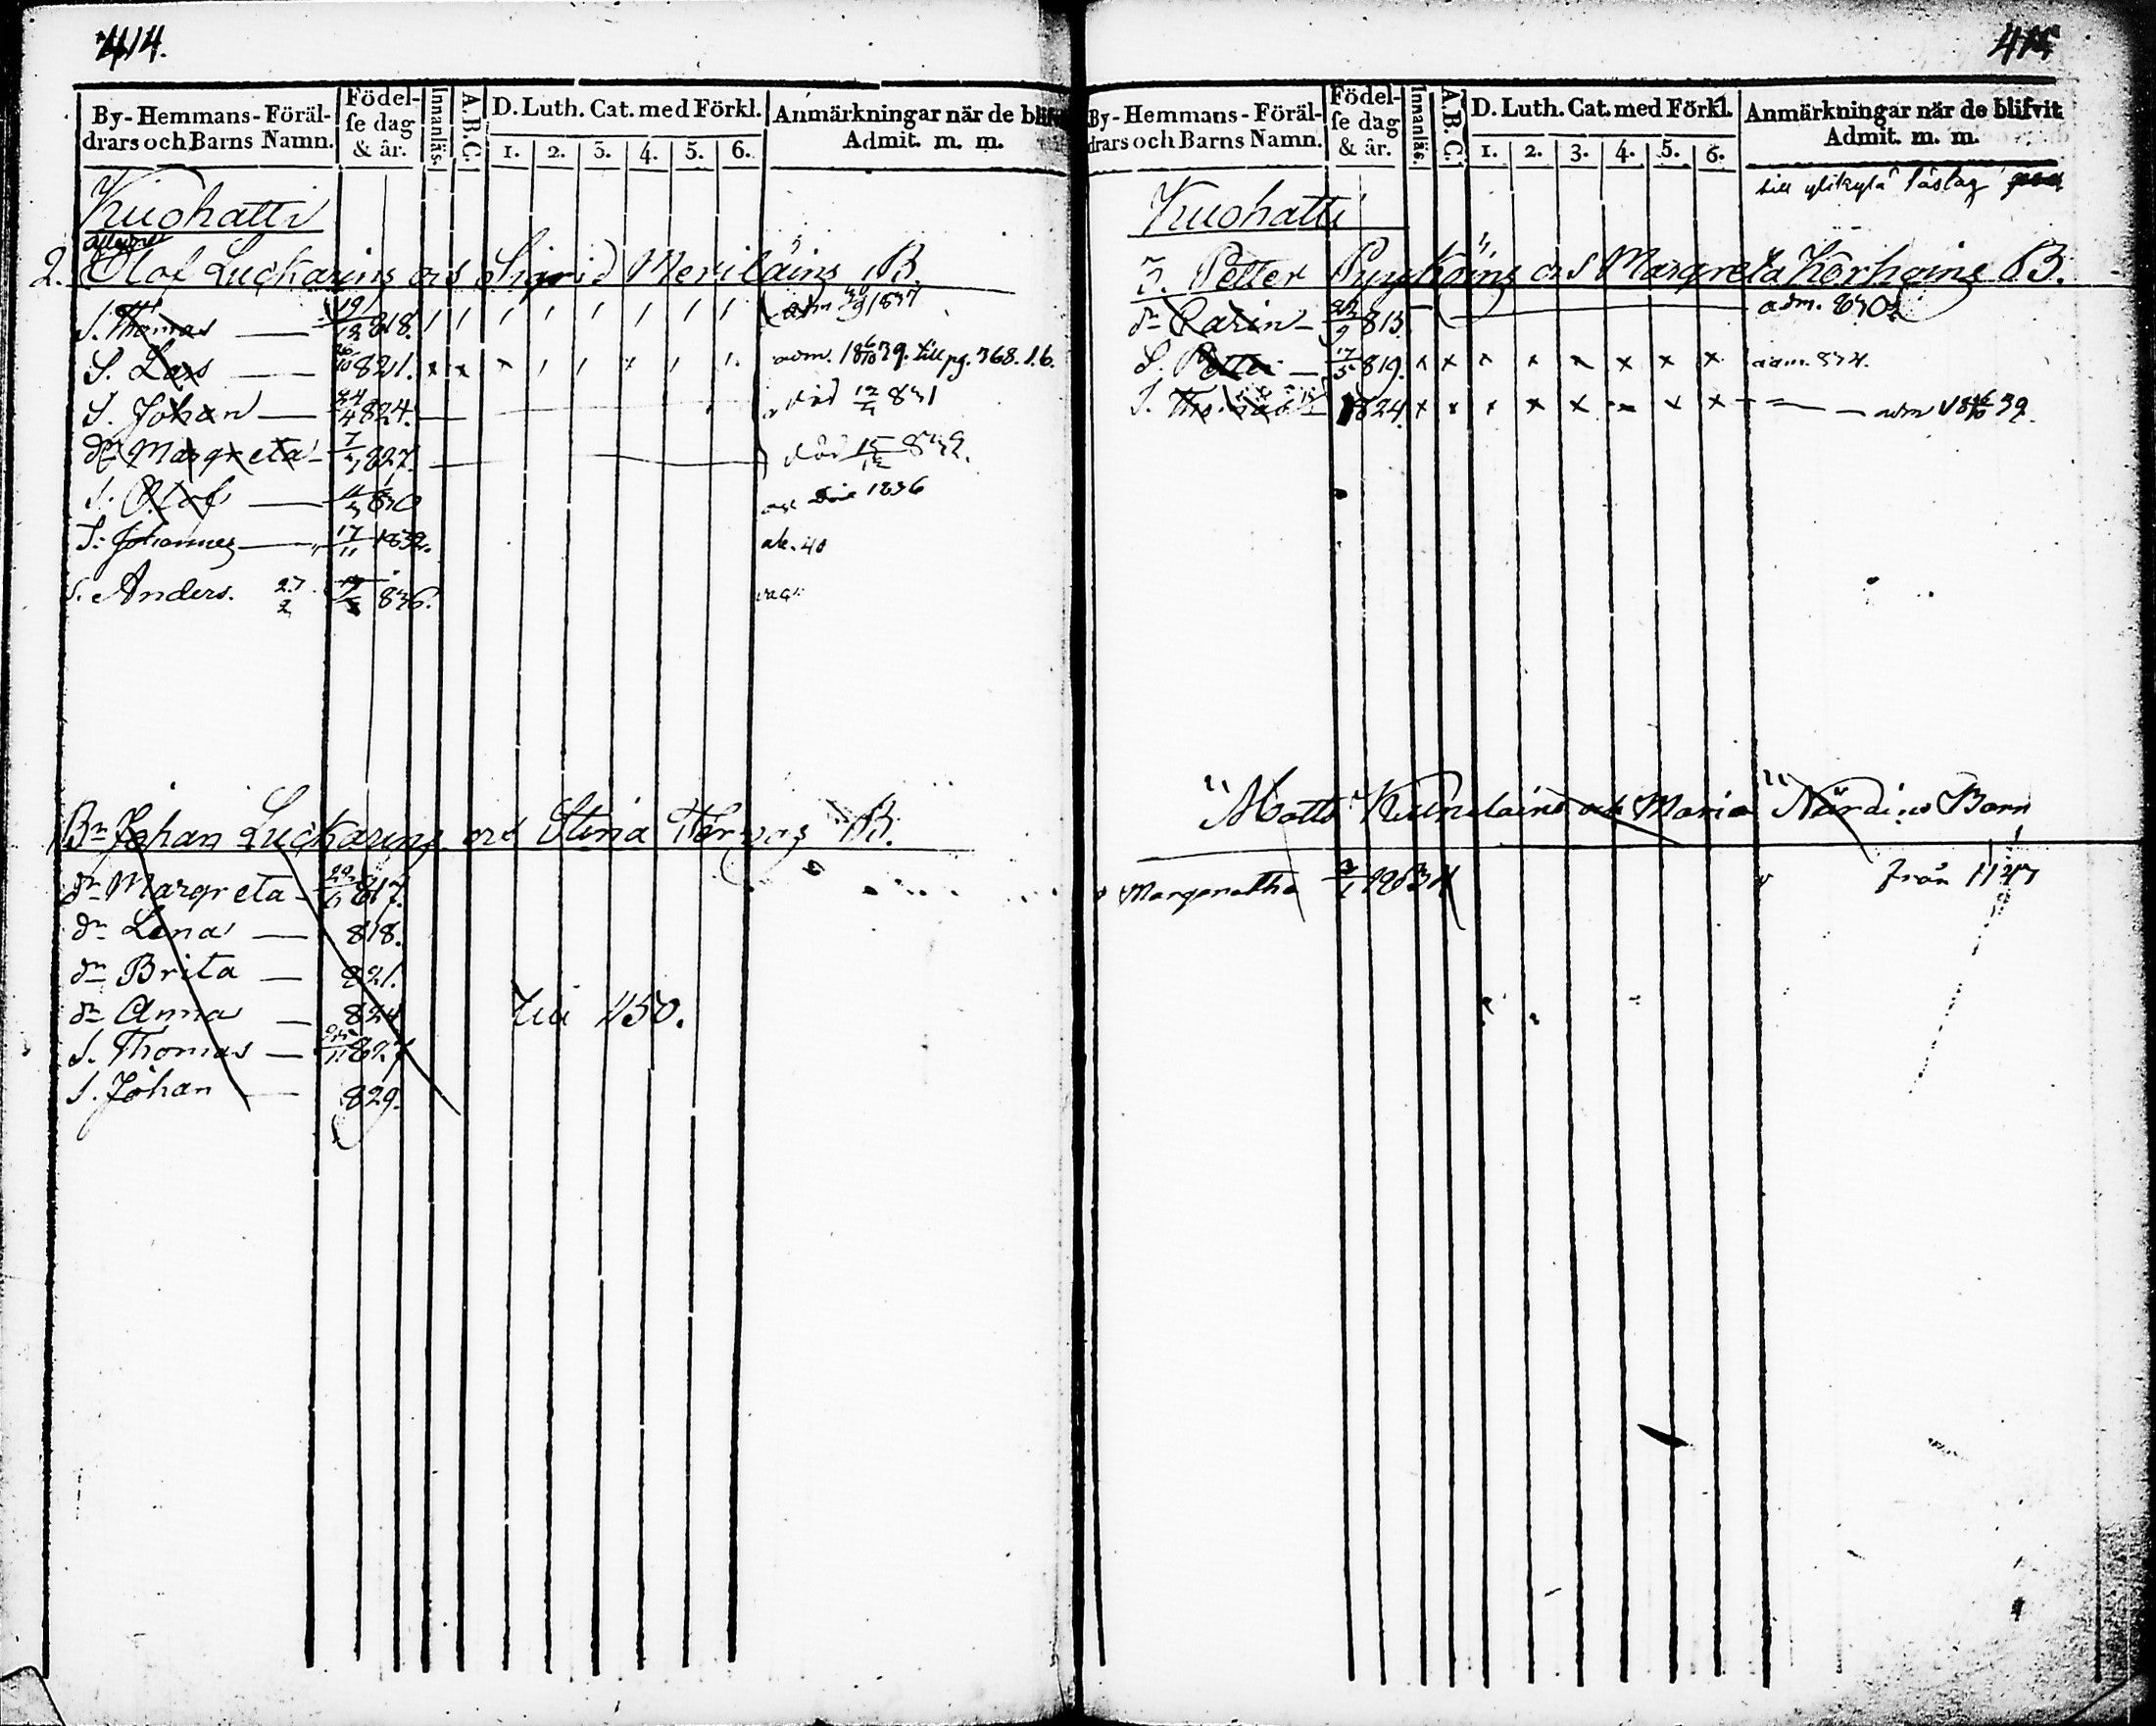 414.
By-Hemmans-Föräl-
drars och Barns Namn.
Födel-
se dag
& år.
Innanläs.
A.B.C.
D. Luth. Cat. med Förkl.
1. 2. 3. 4. 5. 6.
Anmärkningar när de blifvit
Admit. m. m.
Kuohatti
2. Olof Luckarins ocs Sigrid Meriläins B.
S. Thomas 19/12 818. adm 1837
S. Lars 821. adm. 18 6/10 39. till pg. 368. 1.6.
S. Johan 24/4 824. död 12/4 831
dr Margreta 827. död 15/12 832.
S. Olof 830 1836
S. Johannes 17/11 1832. 40
S. Anders. 27/2 836.
Br Johan Luckarins ocs Stina B.
dr Margreta 817.
dr Lena 818.
dr Brita 821.
dr Anna 824
S. Thomas 827
S. Johan 829.
450.
415
By-Hemmans-Föräl-
drars och Barns Namn.
Födel-
se dag
& år.
Innanläs.
A.B.C.
D. Luth. Cat. med Förkl.
1. 2. 3. 4. 5. 6.
Anmärkningar när de blifvit
Admit. m. m.
till ylikylä läslag
Kuohatti
3. Petter Pyykköins ocs Margreta Korhoins B.
dr Carin 22/9 813. adm. 830.
S. Petter 17/5 819. adm. 834.
S. Thomas 1824. adm 18 6/10 39.
Matts och Maria Barn
Margeretha 1834 från 1147